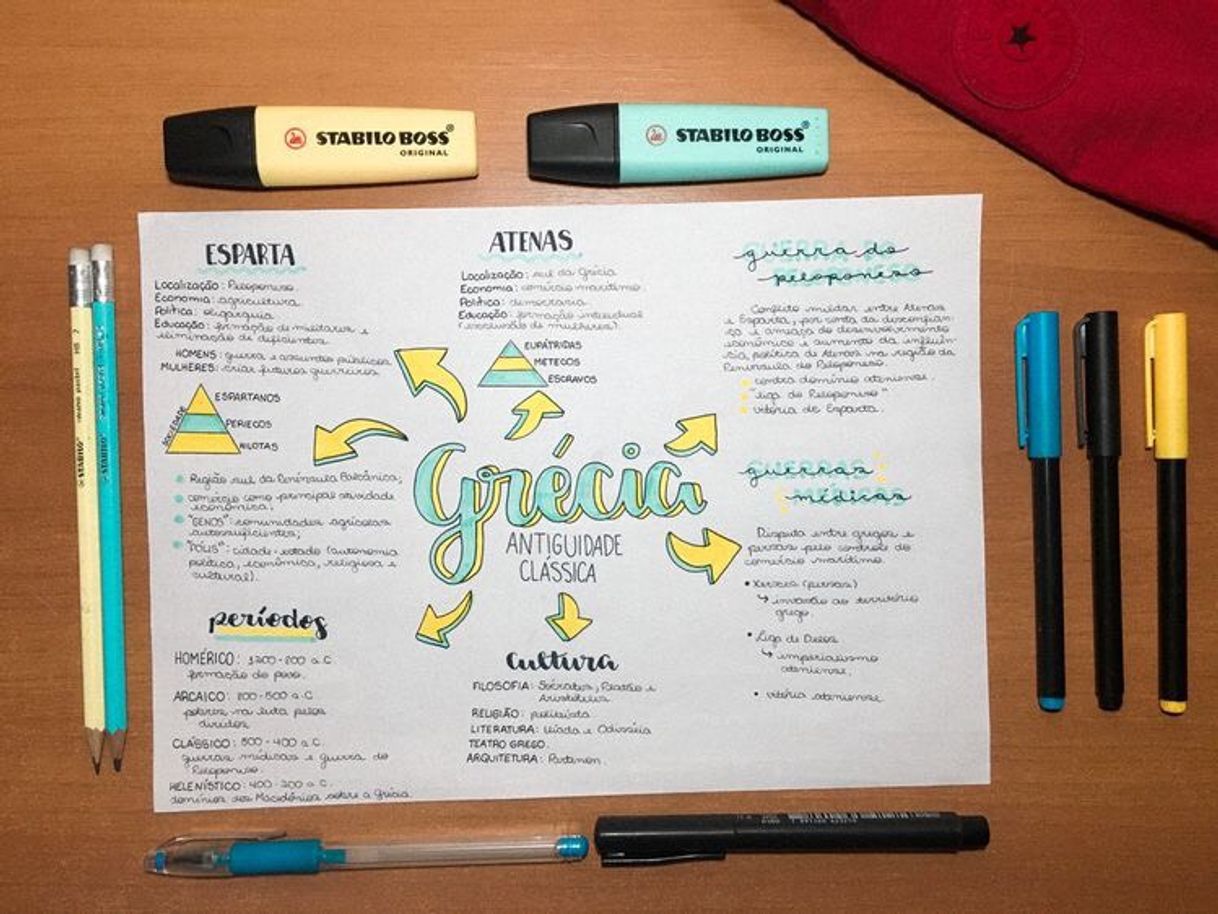 STABILO BOSS®
ORIGINAL
STABILO BOSS®
ORIGINAL
ESPARTA
Localização: Peloponeso.
Economia: agricultura.
Política: oligarquia
Educação: formação de militares e
eliminação de deficientes.
HOMENS: guerra e assuntos públicos
MULHERES: criar futuros guerreiros
SOCIEDADE
ESPARTANOS
PERIECOS
HILOTAS
Região sul da Península Balcânica;
comércio como principal atividade
econômica.
"GENOS": comunidades agrícolas
autossuficientes;
"PÓLIS": cidade-estado (autonomia
política, econômica, religiosa e
cultural).
períodos
HOMÉRICO: 1200-800 a.C.
formação do povo.
ARCAICO: 800-500 a.C
pobres na luta pelos
direitos
CLÁSSICO: 500-400 a.C.
guerras médicas e guerra do
Peloponeso
HELENÍSTICO: 400-200 a.C.
domínios dos Macedônios sobre a Grécia.
ATENAS
Localização: sul da Grécia
Economia: comércio marítimo.
Política: democracia.
Educação: formação intelectual
(exclusão de mulheres).
EUPÁTRIDAS
METECOS
ESCRAVOS
Grécia
ANTIGUIDADE
CLÁSSICA
cultura
FILOSOFIA: Sócrates, Platão e
Aristóteles
RELIGIÃO: politeísta
LITERATURA: Ilíada e Odisséia
TEATRO GREGO.
ARQUITETURA: Partenon.
guerra do
peloponeso
Conflito militar entre Atenas
e Esparta, por conta da desconfian-
ça e ameaça do desenvolvimento
econômico e aumento da influên-
cia política de Atenas na região da
Península do Peloponeso.
contra domínio ateniense.
"liga do Peloponeso"
vitória de Esparta.
guerras
médicas
Disputa entre gregos e
persas pelo controle do
comércio marítimo.
• Xerxes (persas)
↳ invasão ao território
grego.
• Liga de Delos
↳ imperialismo
ateniense.
• vitória ateniense
STABILO
STABILO